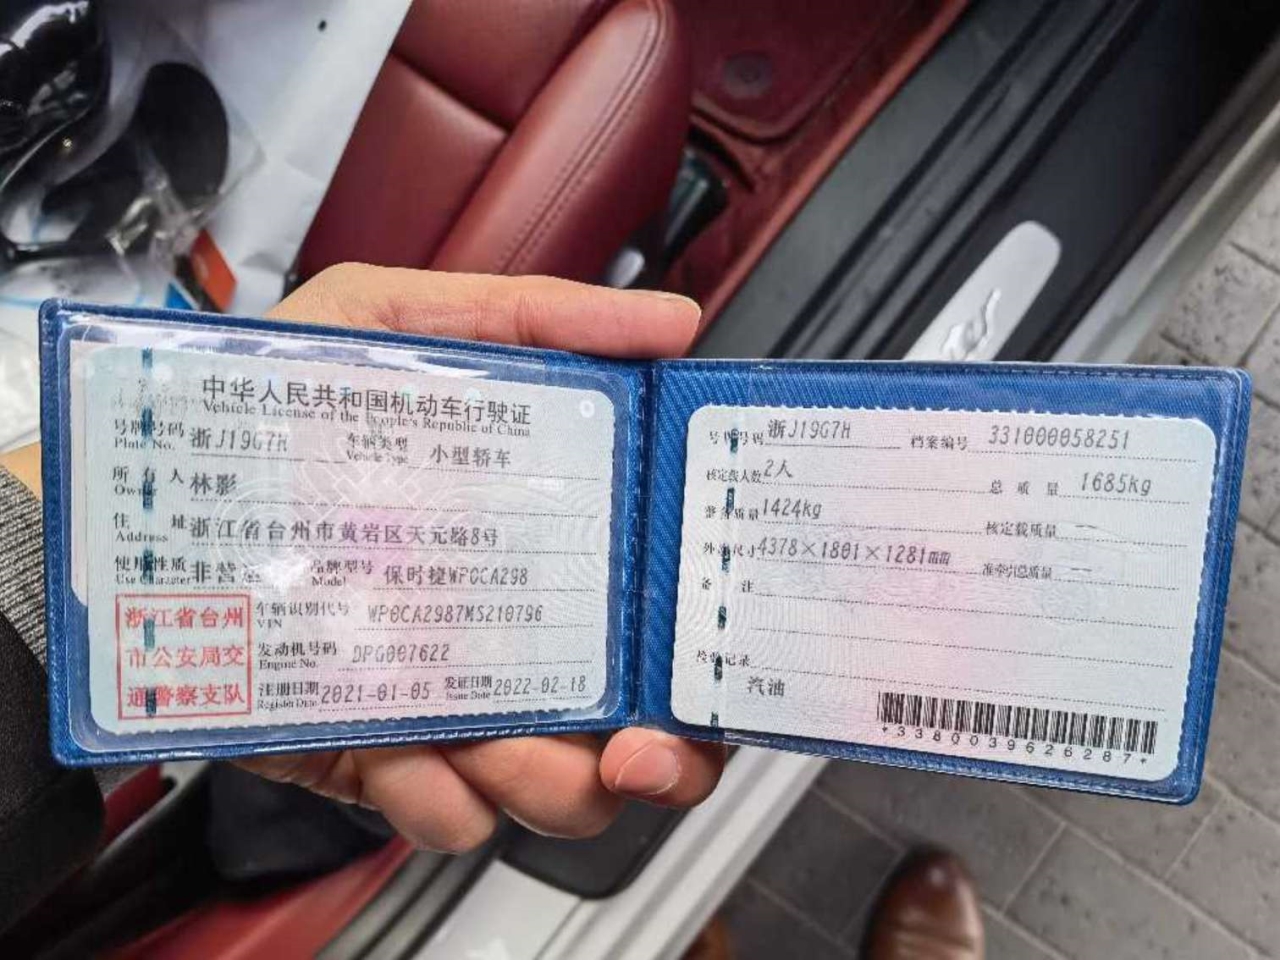 中华人民共和国机动车行驶证
Vehicle License of the People's Republic of China
号牌号码 浙J19G7H 车辆类型 小型轿车
Plate No. Vehicle Type
所有人 林影
Owner
住址 浙江省台州市黄岩区天元路8号
Address
使用性质 非营运 品牌型号 保时捷WP0CA298
Use Character Model
浙江省台州
市公安局交
通警察支队
车辆识别代号 WP0CA2987MS210796
VIN
发动机号码 DPG007622
Engine No.
注册日期 2021-01-05 发证日期 2022-02-18
Register Date Issue Date
号牌号码 浙J19G7H 档案编号 331000058251
核定载人数 2人 总质量 1685kg
整备质量 1424kg 核定载质量 --
外廓尺寸 4378×1801×1281mm 准牵引总质量 --
备注
检验记录
汽油
*3380039626287*